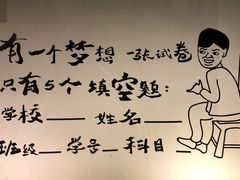 有一个梦想 一张试卷
只有5个填空题:
学校____ 姓名____
班级__ 学号__ 科目__